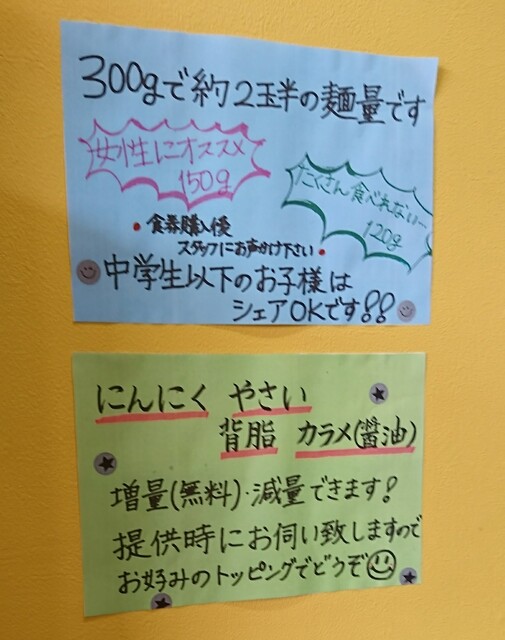 300gで約2玉半の麺量です
女性にオススメ
150g
たくさん食べれない…
120g
•食券購入優
スタッフにお声かけ下さい•
中学生以下のお子様は
シェアOKです!!
にんにく やさい
背脂 カラメ(醤油)
増量(無料)・減量できます!
提供時にお伺い致しますので
お好みのトッピングでどうぞ